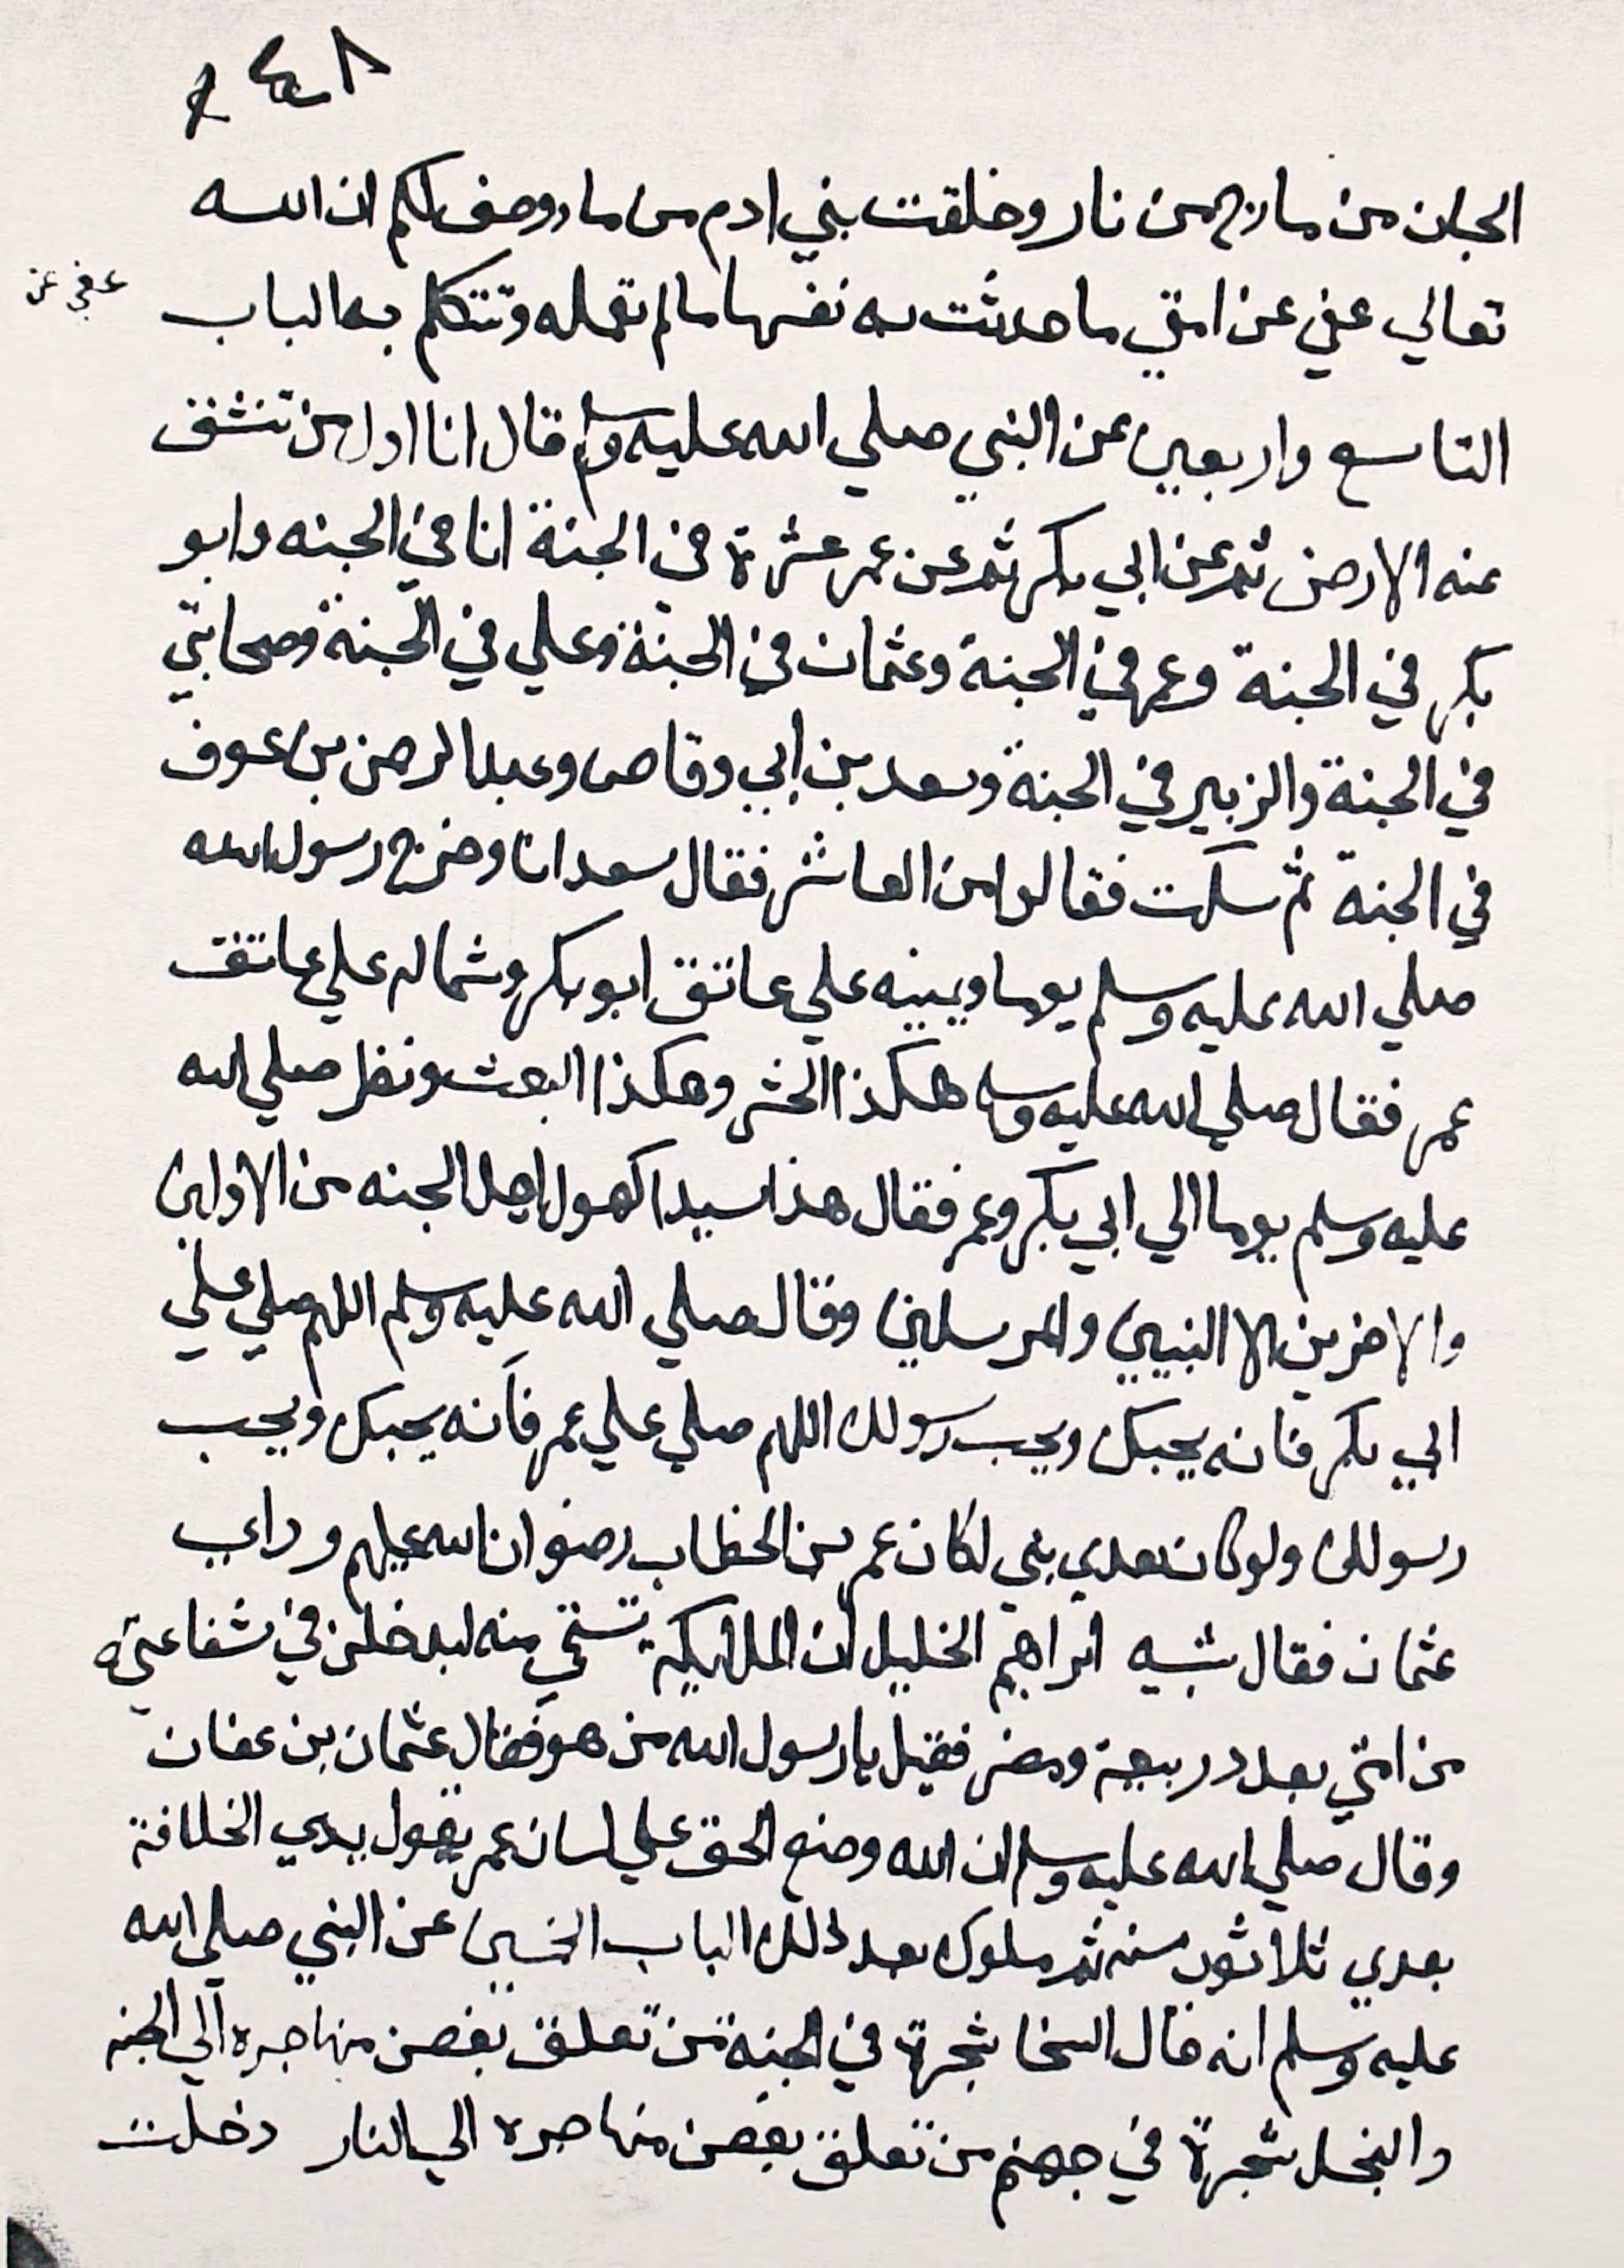 الجان من مارج من نار وخلقت بني ادم من ما روصف لكم ان الله
تعالي عفي عن امتي ما حدثت به نفسها ما لم تعمله وتتكلم به الباب
عفي عن
التاسع واربعين عن النبي صلي الله عليه وسلم قال انا اول من تنشق
عنه الارض ثم عن ابي بكر ثم عن عمر عشرة في الجنة انا في الجنه وابو
بكر في الجنة وعمر في الجنة وعثمان في الجنة وعلي في الجنة وصحابتي
في الجنة والزبير في الجنة وسعد بن ابي وقاص وعبد الرحمن بن عوف
في الجنة ثم سكت فقالوا من العاشر فقال سعد انا وخرج رسول الله
صلي الله عليه وسلم يوما ويمينه علي عاتق ابو بكر وشماله علي عاتق
عمر فقال صلي الله عليه وسلم هكذا الحشر وهكذا البعث ونظر صلي الله
عليه وسلم يوما الي ابي بكر وعمر فقال هذا سيدا كهول اهل الجنه من الاولين
والاخرين الا النبيين والمرسلين وقال صلي الله عليه وسلم اللهم صلي علي
ابي بكر فانه يحبك ويحب رسولك اللهم صلي علي عمر فانه يحبك ويحب
رسولك ولو كان بعدي نبي لكان عمر بن الخطاب رضوان الله عليهم وراي
عثمان فقال شبيه ابراهيم الخليل ان الملايكة تستحي منه ليدخلن في شفاعتي
من امتي بعدد ربيعة ومضر فقيل يا رسول الله من هو فقال عثمان بن عفان
وقال صلي الله عليه وسلم ان الله وضع الحق علي لسان عمر يقول بيدي الخلافة
بعدي ثلاثون سنه ثم ملوك بعد ذلك الباب الخمسين عن النبي صلي الله
عليه وسلم انه قال السخا شجرة في الجنة من تعلق بغصن منها جره الي الجنه
والبخل شجرة في جهنم من تعلق بغصن منها جره الي النار دخلت